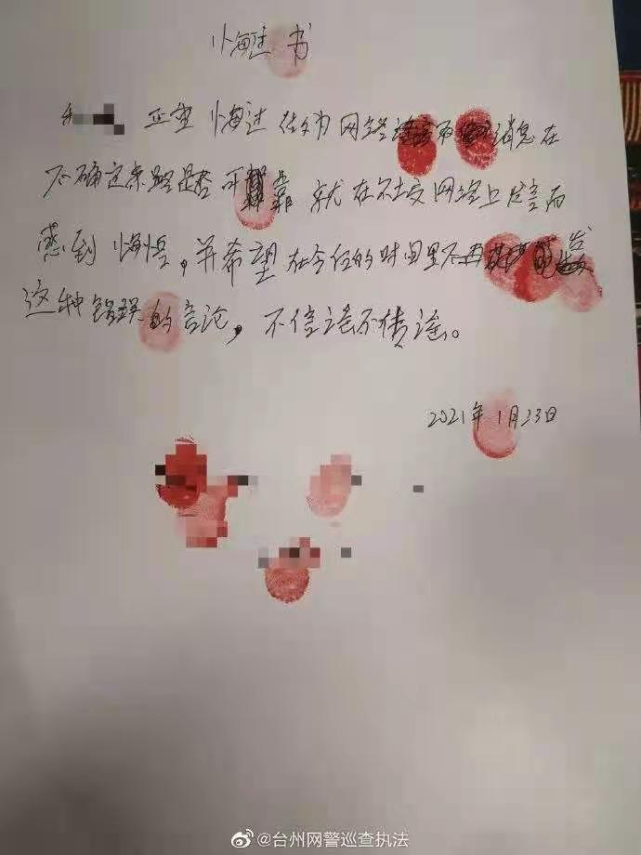 悔过书
正里 悔过 传为网络 消息在
不确定来路是否可 靠 就在社交网络上发言而
感到悔悟，并希望在今后的时间里不再 发
这种错误的言论，不信谣不传谣。
2021年1月23日
@台州网警巡查执法